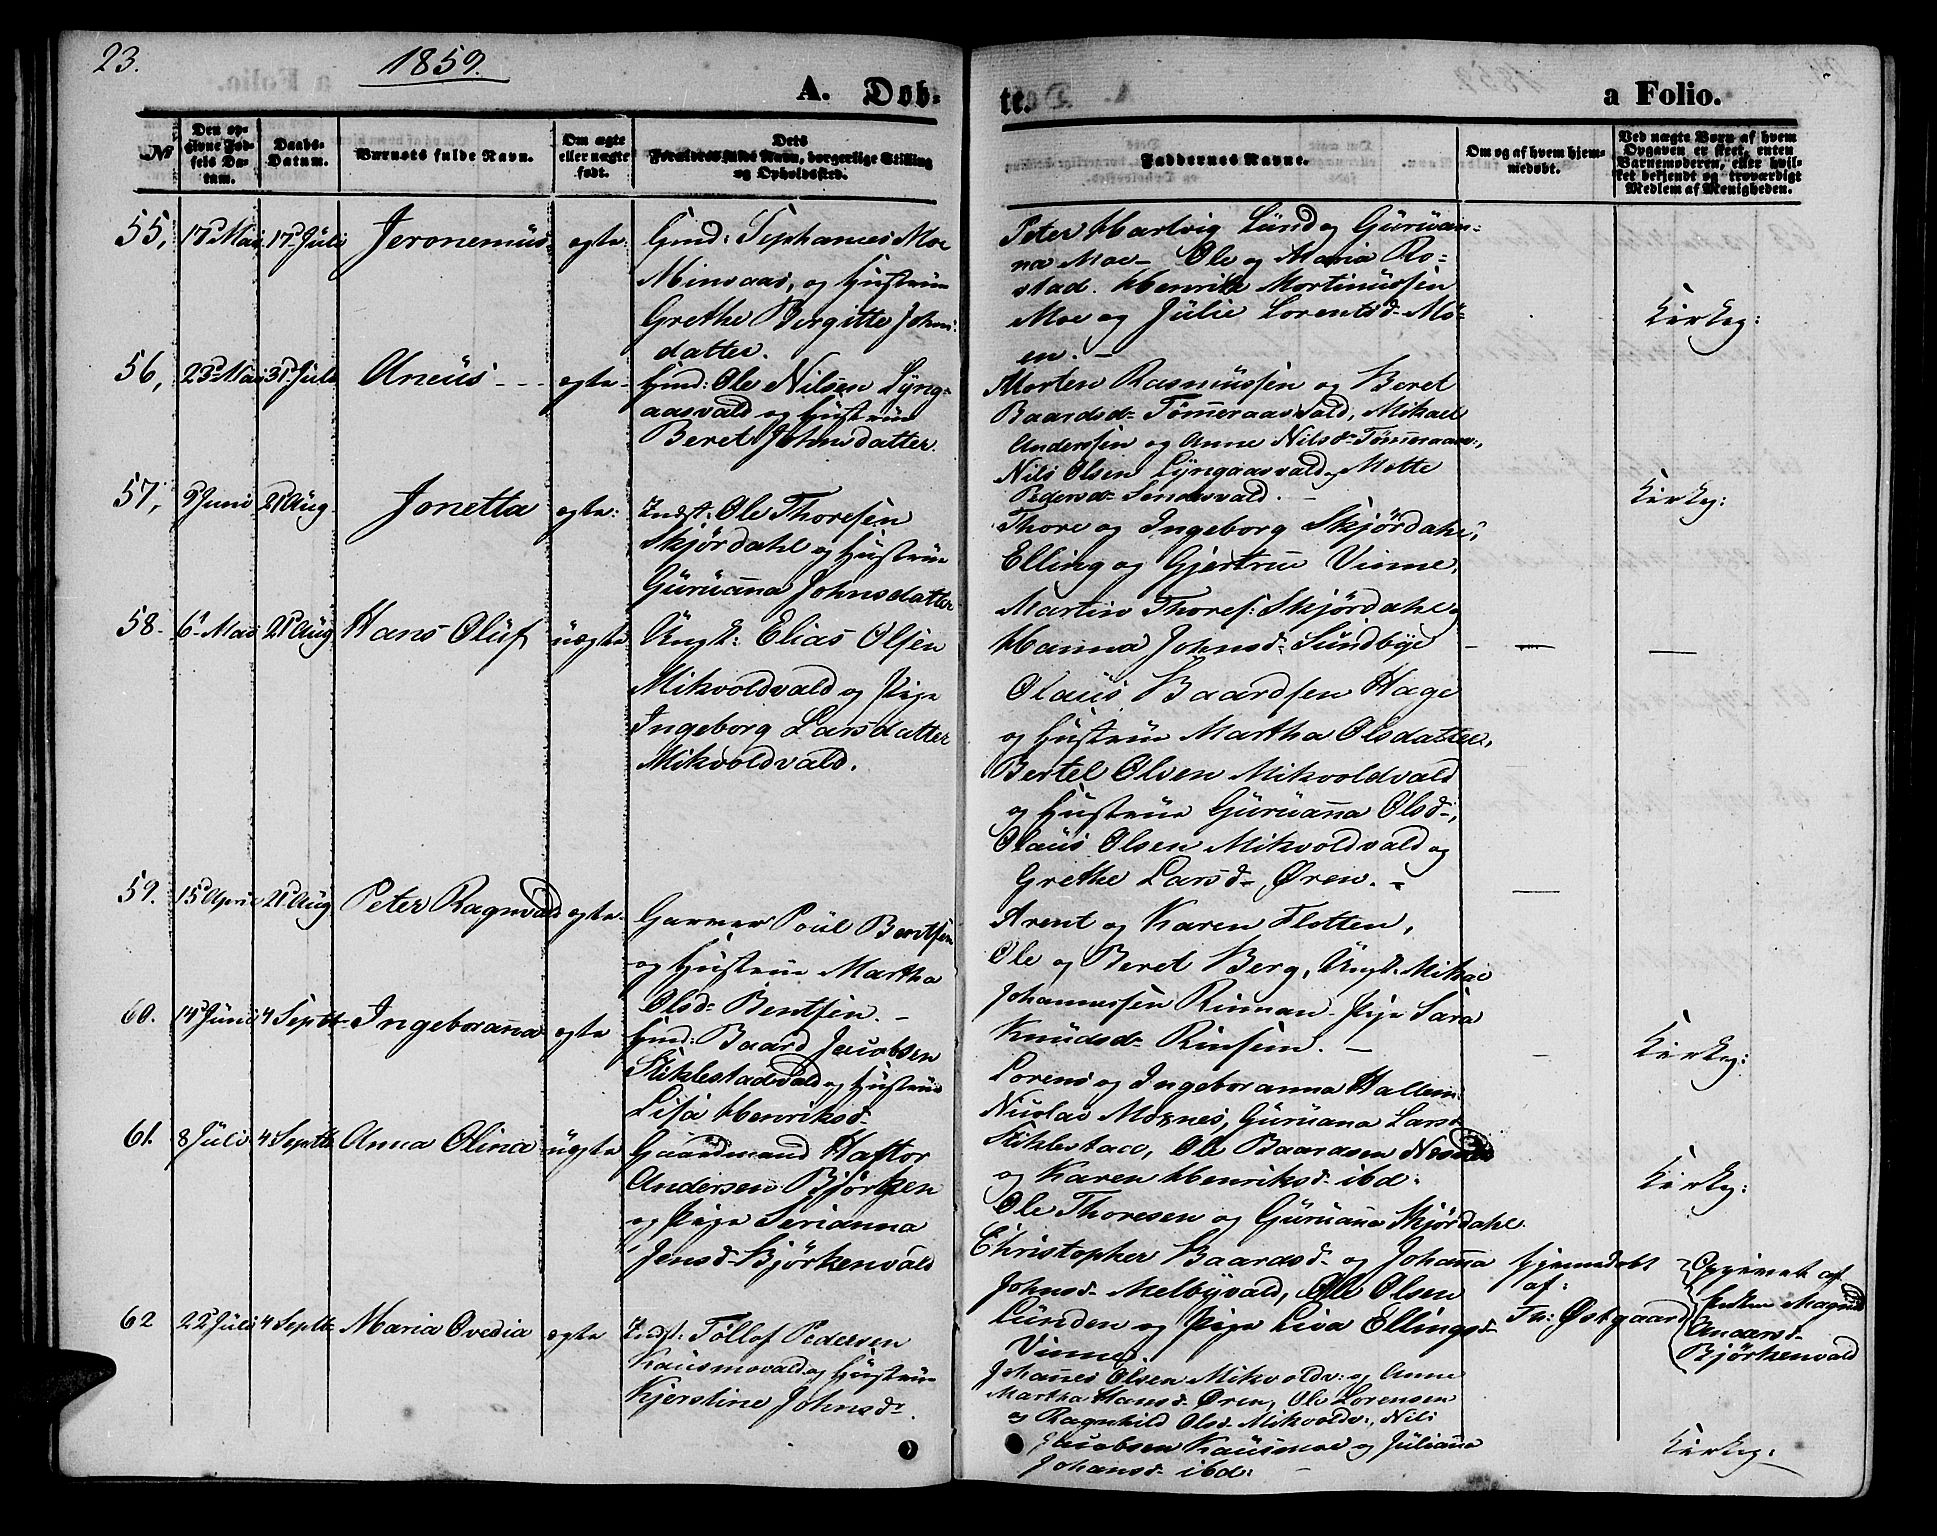 23.
1859.
A. Døb-
te.
a Folio.
№
Den op-
givne Fød-
sels Da-
tum.
Daabs-
Datum.
Barnets fulde Navn.
Om ægte
eller uægte
født.
Dets
Forældres fulde Navn, borgerlige Stilling
og Opholdssted.
Faddernes Navne.
Om og af hvem hjem-
medøbt.
Ved uægte Børn af hvem
Opgaven er skeet, enten
Barnemoderen, eller hvil-
ket bekjendt og troværdigt
Medlem af Menigheden.
55, 17 Mai 17 Juli Jeronemüs ægte
Gmd: Sephanias Moe
Minsaas, og Hustrue
Grethe Birgitte Johns
datter.
Peter Hartvig Lund og Gürüan-
na Moe - Ole og Maria Ro-
stad. Henrik Mortinussen
Moe og Julie Lorentsd. Mo-
en. -
Kirkeg:
56, 23 Mai 31 Juli Aneüs - - - ægte -
Gmd: Ole Nilsen Lÿng-
aasvald og Hustrue
Beret Johnsdatter.
Morten Rasmussen og Beret
Baardsd. Tømeraasvald, Mikael
Anderssen og Anne Nilsd. Tømmeraasv:,
Nils Olsen Lyngaasvald og Mette
Pedersd. Sendesvald. -
Kirkeg:
57, 9 Juni 21 Aug Jonetta ægte:
Indst: Ole Thoresen
Skjørdahl og Hustrue
Gürüana Johnsdatter
Thore og Ingeborg Skjørdahl,
Elling og Gjertrue Vinne,
Martin Thores: Skjørdahl og
Hanna Johnsd. Sundbye
58. 6 Mai 21 Aug Hans Olüf uægte
Ungk: Elias Olsen
Mikvoldvald og Pige
Ingeborg Larsdatter
Mikvoldvald.
Olaüs Baardsen Hage
og Hustrue Martha Olsdatter,
Bertel Olsen Mikvoldvald
og Hustrue Gürüana Olsd.,
Olaüs Olsen Mikvoldvald og
Grethe Larsd. Øren. -
59. 15 April 21 Aug Peter Ragnvald ægte.
Garver Poül Bentsen
og Hustrue Martha
Olsd. Bentsen. -
Arent og Karen Flotten,
Ole og Beret Berg, Ungk: Mikal
Johannessen Rinnan - Pige Sara
Knudsd. Rinsem. -
60. 14 Juni 4 Septb. Ingeborana ægte
Gmd: Baard Jacobsen
Stiklestadvald og Hustrue
Lisa Henriksd.
Lorens og Ingeboranna Hallem
Nicolai Moxnes, Gürüana Larsd.
Stiklestad, Ole Baardsen
og Karen Henriksd. ibd:
Kirkeg:
61. 8 Juli 4 Septb. Anna Olina uægte
Gaardmand Haftor
Andersen Bjørken
og Pige Serianna
Jensd. Bjørkenvald
Ole Thoresen og Gürüana Skjørdahl
Christopher Baardsd. og Johana
Johnsd. Melbyvald, Ole Olsen
Lunden og Pige Lisa Ellingsd.
Vinne.
Kirkeg:
hjemmedøbt
af:
Th: Østgaard
Opgivet af
Enken
Bjørkenvald
62 22 Juli 4 Septb. Maria Ovedia ægte
Indst: Tollof Pedersen
Kausmovald og Hustrue
Kjerstine Johnsd.
Johanes Olsen Mikvoldv: og Anne
Martha Hansd. Øren, Ole Lorensen
og Ragnhild Olsd. Mikvoldv:, Nils
Jacobsen Kausmoe og Juliana
Johansd. ibd: -
Kirkeg: